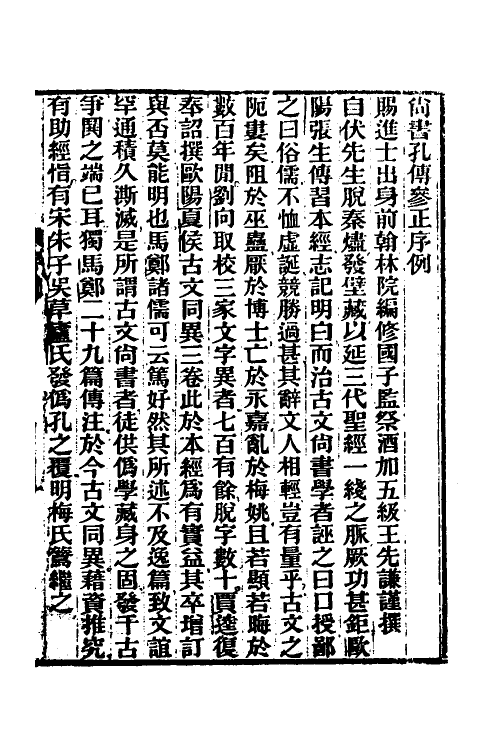 尙書孔傳參正序例
賜進士出身前翰林院編修國子監祭酒加五級王先謙謹撰
自伏先生脫秦燼發壁藏以延三代聖經一綫之脈厥功甚鉅歐
陽張生傳習本經志記明白而治古文尙書學者誣之曰口授鄙
之曰俗儒不恤虛誕競勝過甚其辭文人相輕豈有量乎古文之
阨寠矣阻於巫蠱厭於博士亡於永嘉亂於梅姚且若顯若晦於
數百年閒劉向取校三家文字異者七百有餘脫字數十賈逵復
奉詔撰歐陽夏侯古文同異三卷此於本經爲有實益其卒增訂
與否莫能明也馬鄭諸儒可云篤好然其所述不及逸篇致文誼
罕通積久澌滅是所謂古文尙書者徒供僞學藏身之固發千古
爭鬨之端已耳獨馬鄭二十九篇傳注於今古文同異藉資推究
有助經惜有宋朱子吳草廬氏發僞孔之覆明梅氏鷟繼之